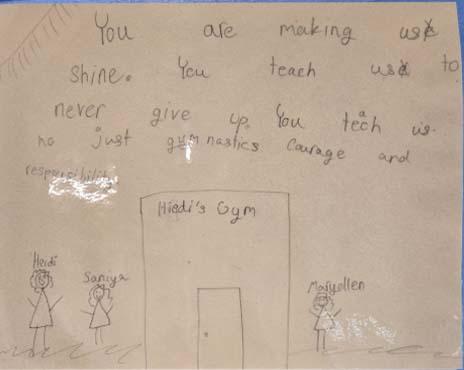 You are making us
shine. You teach us to
never give up. You teach us
no just gymnastics courage and
responsibility
Hiedi's Gym
Heidi
Saniya
Maryellen